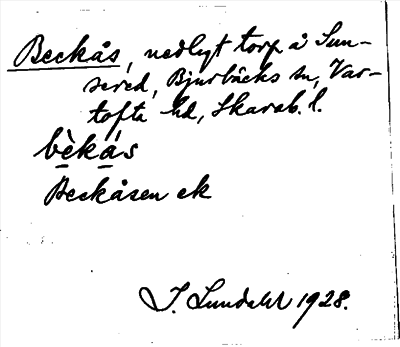 Beckås, nedlygt torp å Sun-
sered, Bjurbäcks sn, Var-
tofta hd, Skarab. l.
bèkás
Beckåsen ek
I. Lundahl 1928.